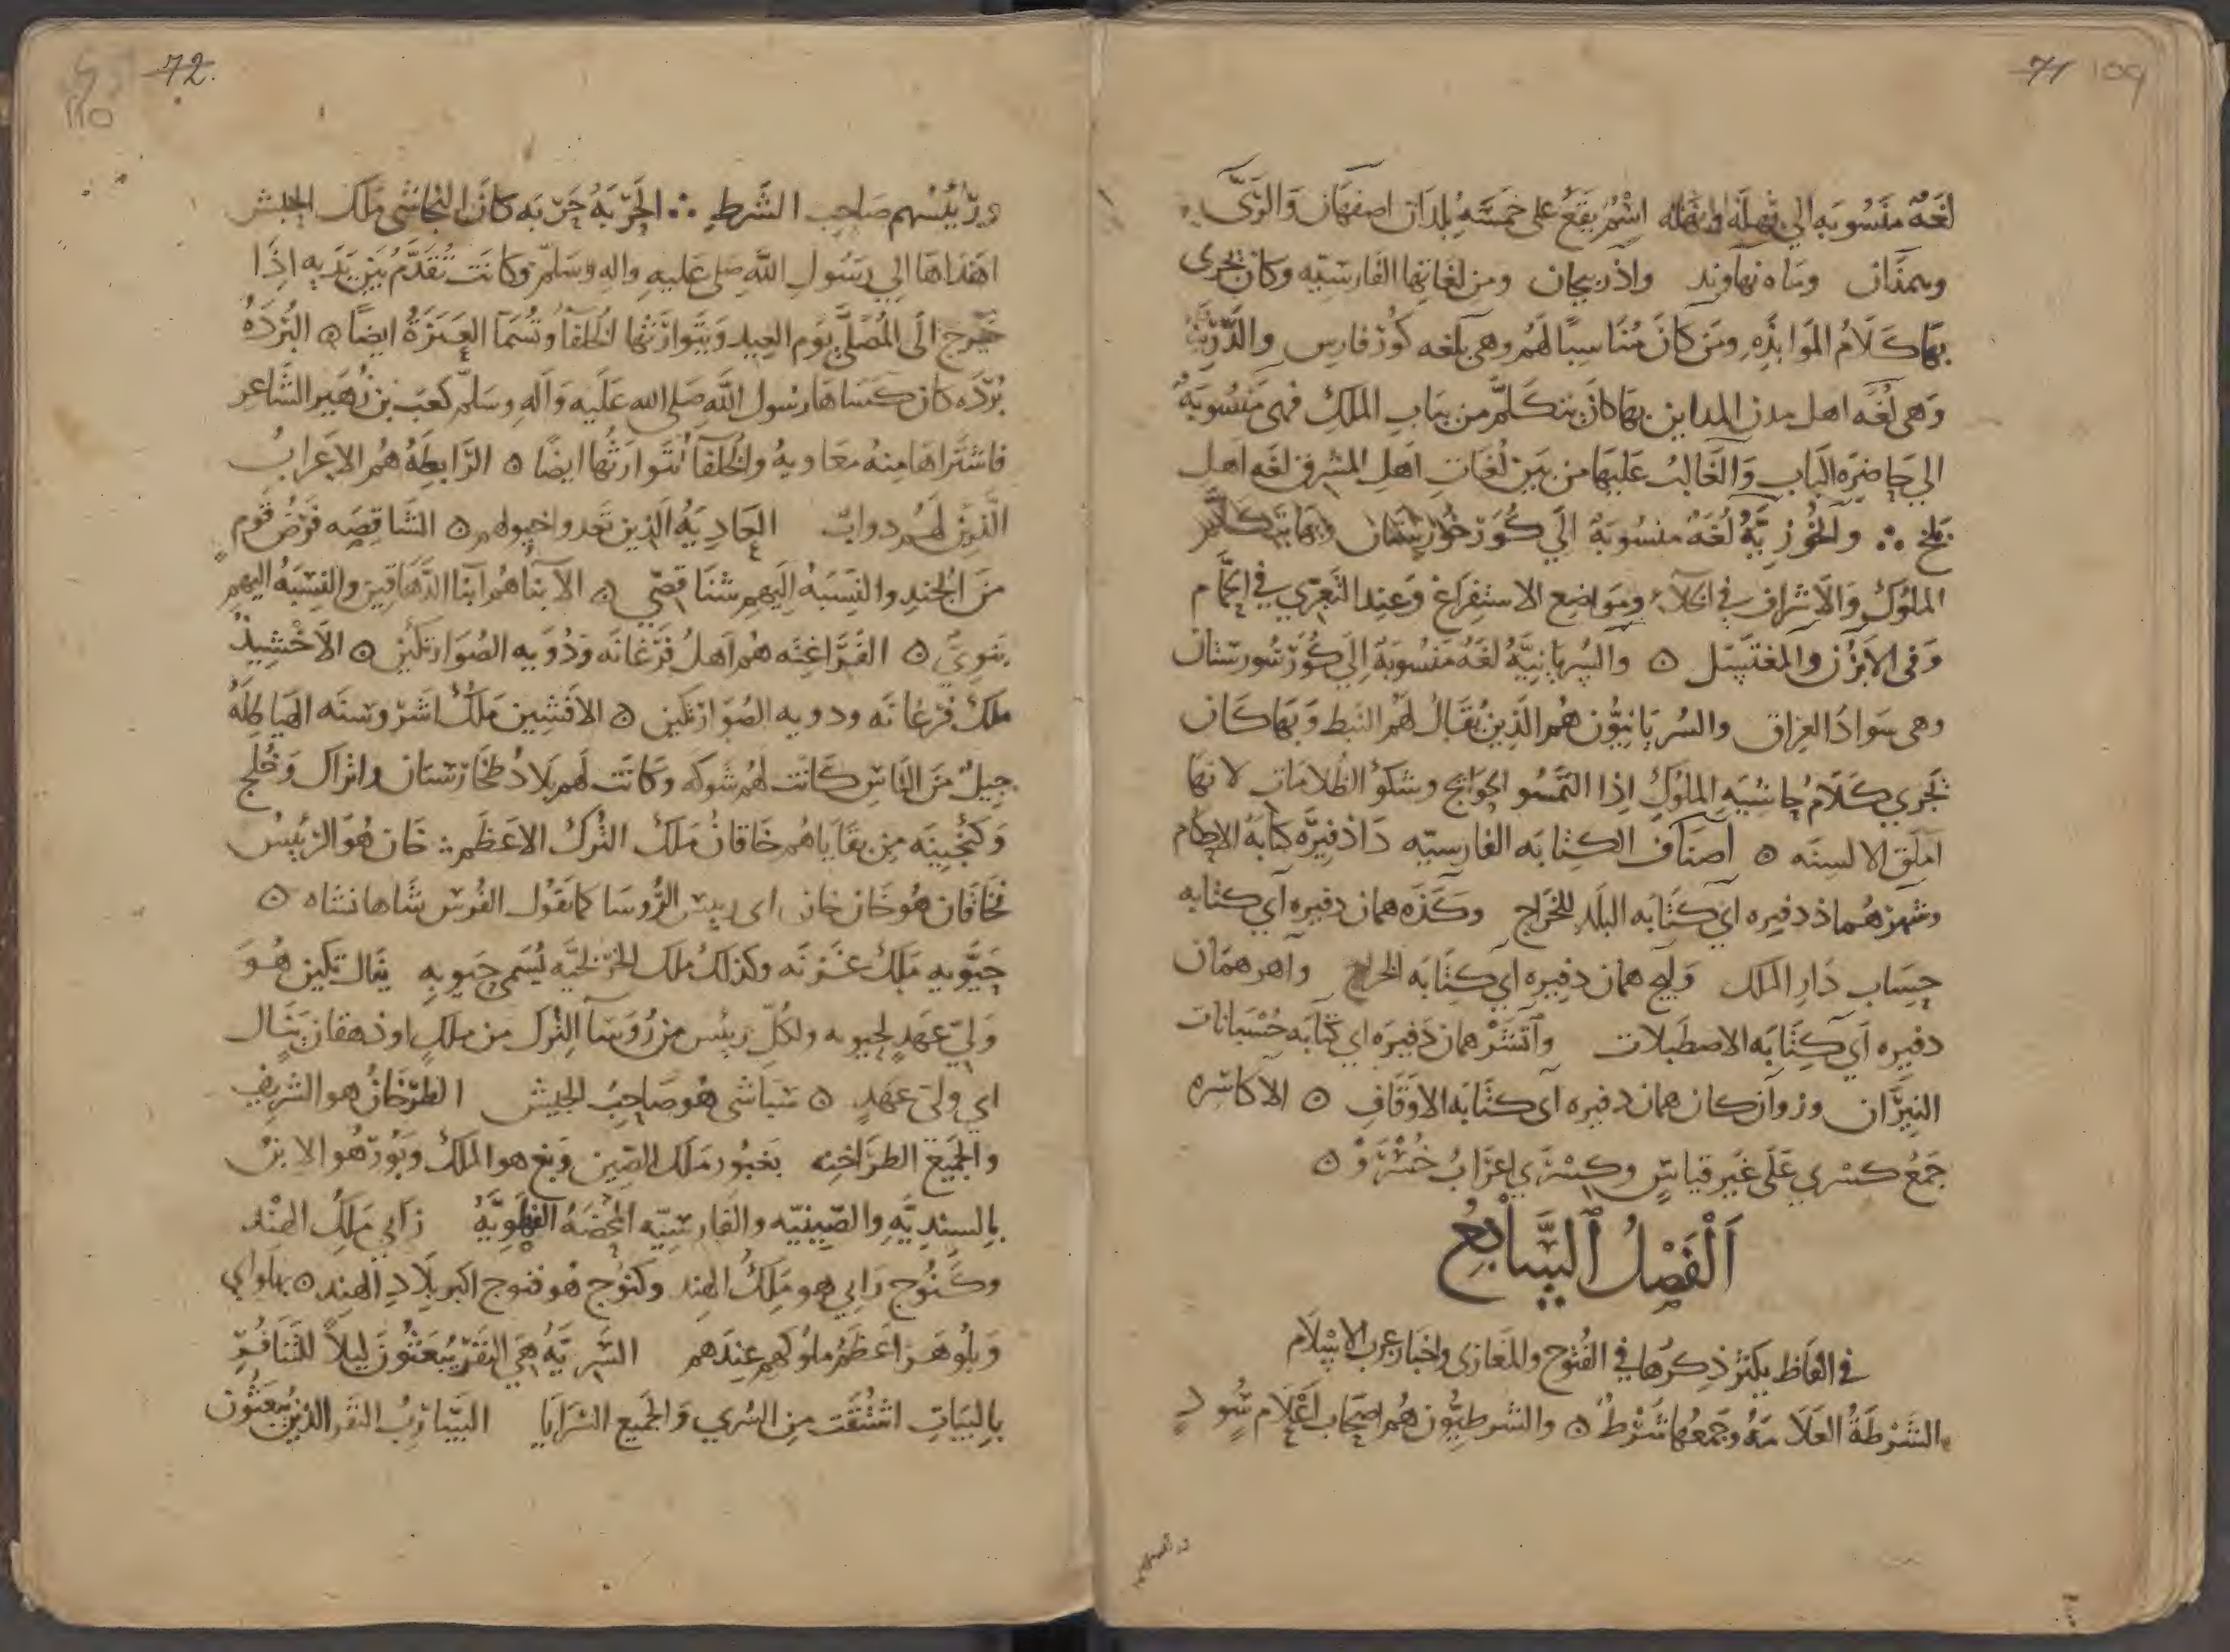 71 109
لغة منسوبه الي فهله وفهله اسم يقع على خمسة بلدان اصفهان والري
وهمذان وماه نهاوند واذربيجان ومن لغاتها الفارسيه وكان يجري
بها كلام الموابذه ومن كان مناسبا لهم وهي بلغه كور فارس والدرية
وهي لغه اهل مدن المداين بها كان يتكلم من بباب الملك فهي منسوبة
الي حاضره الباب والغالب عليها من بين لغات اهل المشرق لغه اهل
بلخ ∴ والخوزيّة لغه منسوبة الي كور خورستان وبها يتكلم
الملوك والاشراف في الخلاء ومواضع الاستفراغ وعند التعري في الحمام
وفي الابزن والمغتسل ۞ والسريانيّة لغه منسوبة الي كور سورستان
وهي سواد العراق والسريانيّون هم الذين يقال لهم النبط وبها كان
تجري كلام حاشيه الملوك اذا التمسو الحوائج وشكو الظلامات لانها
املق الالسنه ۞ اصناف الكتابه الفارسيه داذ فيره كتابه الاحكام
وشهر هماذ دفيره اي كتابه البلد للخراج وكذه همان دفيره اي كتابه
حساب دار الملك وليح همان دفيره اي كتابه الخراج واهر همان
دفيره اي كتابه الاصطبلات واتشر همان دفيره اي كتابه حسبانات
النيران وزوان كان همان دفيره اي كتابه الاوقاف ۞ الاكاسره
جمع كسري على غير قياس وكسري اعراب خسرو ۞
الفصل السابع
في الفاظ يكثر ذكرها في الفتوح والمغازي واخبار عرب الاسلام
الشرطة العلامة وجمعها شرط ۞ والشرطيون هم اصحاب اعلام سود
72.
110
ورئيسهم صاحب الشرط ∴ الحربة حربه كان النجاشي ملك الحبش
اهداها الي رسول الله صلى عليه واله وسلم وكانت تقدم بين يديه اذا
خرج الى المصلي يوم العيد ويتوارثها الخلفا وتسما العنزة ايضا ۞ البردة
برده كان كساها رسول الله صلى الله عليه واله وسلم كعب بن زهير الشاعر
فاشتراها منه معاويه والخلفا تتوارثها ايضا ۞ الرابطة هم الاعراب
الذين لهم دواب العادية الذين تعدو اخيولهم ۞ الشاقصه فرض قوم
من الجند والنسبه اليهم شناقصي ۞ الابنا هم ابنا الدهاقين والنسبه اليهم
بنوي ۞ الفراغنه هم اهل فرغانه ودويه الصوارتكين ۞ الاخشيد
ملك فرغانه ودويه الصوارتكين ۞ الافشين ملك اشروسنه الهياطله
جيل من الناس كانت لهم شوكه وكانت لهم بلاد طخارستان واتراك وخلج
وكنجينه من بقاياهم خاقان ملك الترك الاعظم ∴ خان هو الرئيس
فخاقان هو خان خان اي ريس الروسا كما يقول الفرس شاهانشاه ۞
جبويه ملك غزنه وكذلك ملك الخرلخيه يسمى جبويه ينال تكين هو
ولي عهد لجبويه ولكل رييس من روسا الترك من ملك او دهقان ينال
اي ولي عهد ۞ سباشي هو صاحب الجيش الطرخان هو الشريف
والجميع الطراخنه بغبور ملك الصين وبغ هو الملك وبور هو الابن
بالسنديّه والصينيه والفارسيه المحضه الفهلويّة زابي ملك الهند
وكنوج رابي هو ملك الهند وكنوج هو قنوج اكبر بلاد الهند ۞ بهلواي
وبلوهرا عظم ملوكهم عندهم السرية هي النفر يبعثون ليلا للتنافر
بالبيات اشتقت من السري والجميع السرايا السارب النفر الذين يبعثون